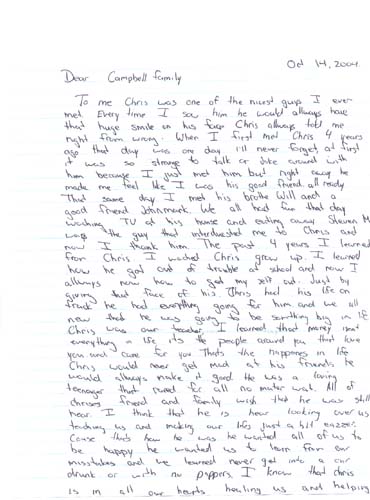 Oct 14, 2004
Dear Campbell family
To me Chris was one of the nicest guys I ever
met. Every time I saw him he would allways have
that huge smile on his face Chris allways told me
right from wrong. When I first met Chris 4 years
ago that day was one day I'll never forget, at first
it was so strange to talk or joke around with
him because I just met him but right away he
made me feel like I was his good friend all ready
That same day I met his brothe Will and a
good friend Johnmark. We all had fun that day
watching TV at his house and eating away. Steven M
was the guy that me to Chris and
now I thank him. The past 4 years I learned
from Chris I wached Chris grow up. I learned
how he got out of trouble at school and now I
allways now how to get my self out. Just by
giving that face of his. Chris had his life on
track he had everything going for him and we all
new that he was going to be somthing big in life
Chris was our teacher. I learned that money isnt
everything in life its the people around you that love
you and care for you Thats the happines in life
Chris would never get mad at his friends he
would allways make it good. He was a loving
teenager that cared for all no mater wat. All of
chrises friend and family wish that he was still
hear. I think that he is hear looking over us
teaching us and making our lifs just a bit eazzer.
Cause thats how he was he wanted all of us to
be happy he wanted us to learn from our
misstakes and we learned never get into a car
drunk or with no I know that chris
is in all our hearts healing us and helping